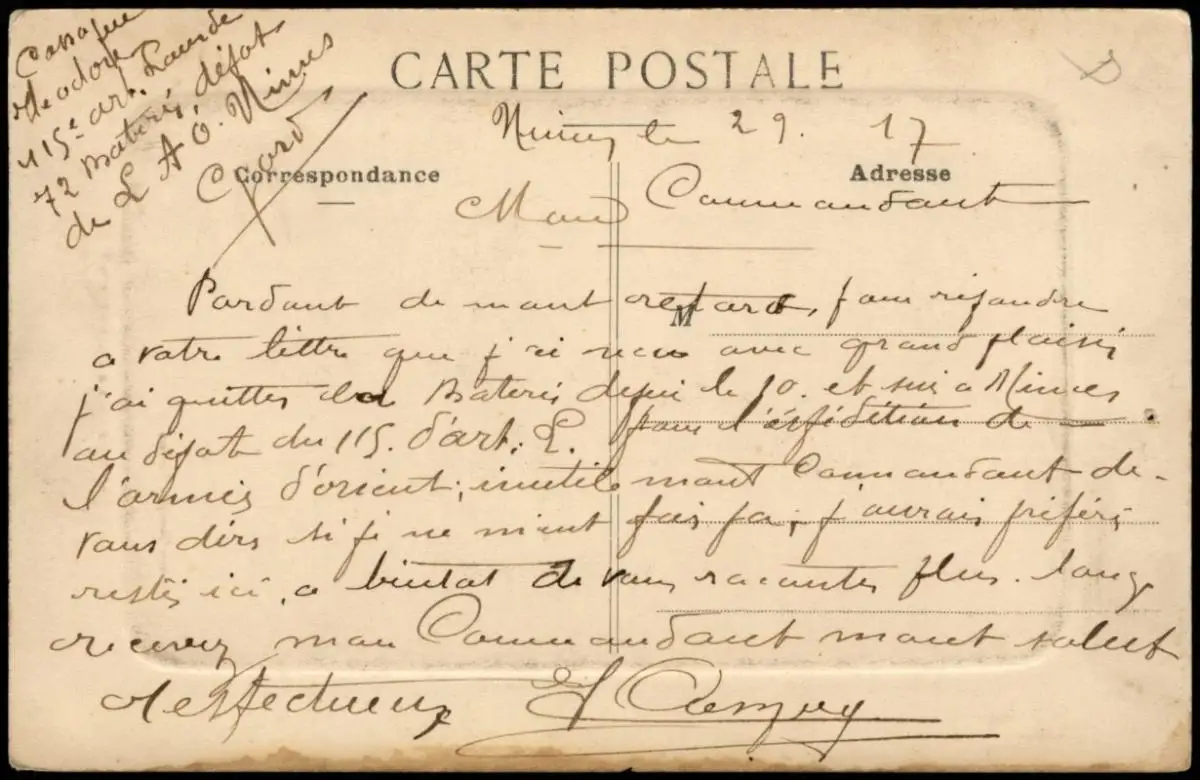 Theodore
115e art. Lourde
72 Baterie, dépot
de L A O. Nimes
Gard
CARTE POSTALE
Nimes le 29. 17
Correspondance
Adresse
Mon Commandant
M
Pardont de mont retard, pour repondre
a votre lettre que j'ai recu avec grand plaisir
j'ai quitter la Baterie depui le 10. et sui a Nimes
au dépot du 115. d'art. L. pour l'éxpidition de
l'armée d'orient; inutile mont Commandant de-
vous dire si je ne m'ent fais pa; j'aurais préféré
resté ici, a bientot de vous raconter plus. long
recevez mon Commandant mont salut
respectueux